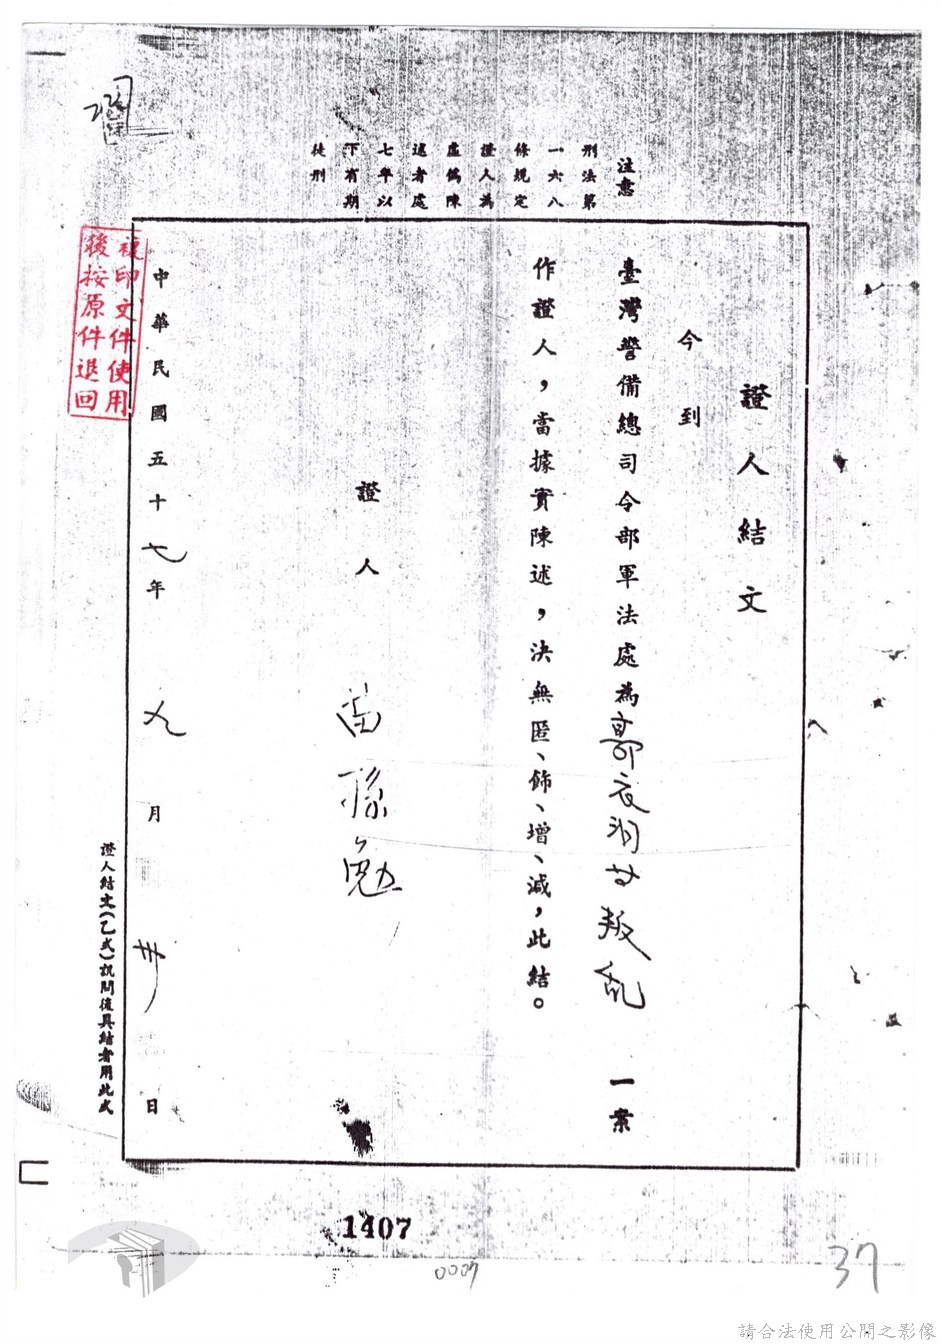 注意
刑法第
一六八
條規定
證人為
虛偽陳
述者處
七年以
下有期
徒刑
證人結文
今到
臺灣警備總司令部軍法處為郭衣洞女叛乱一案
作證人，當據實陳述，決無匿、飾、增、減，此結。
證人 苗
中華民國五十七年九月卅日
證人結文（乙式）訊問後具結者用此式
複印文件使用
後按原件退回
1407
0007
37
請合法使用公開之影像